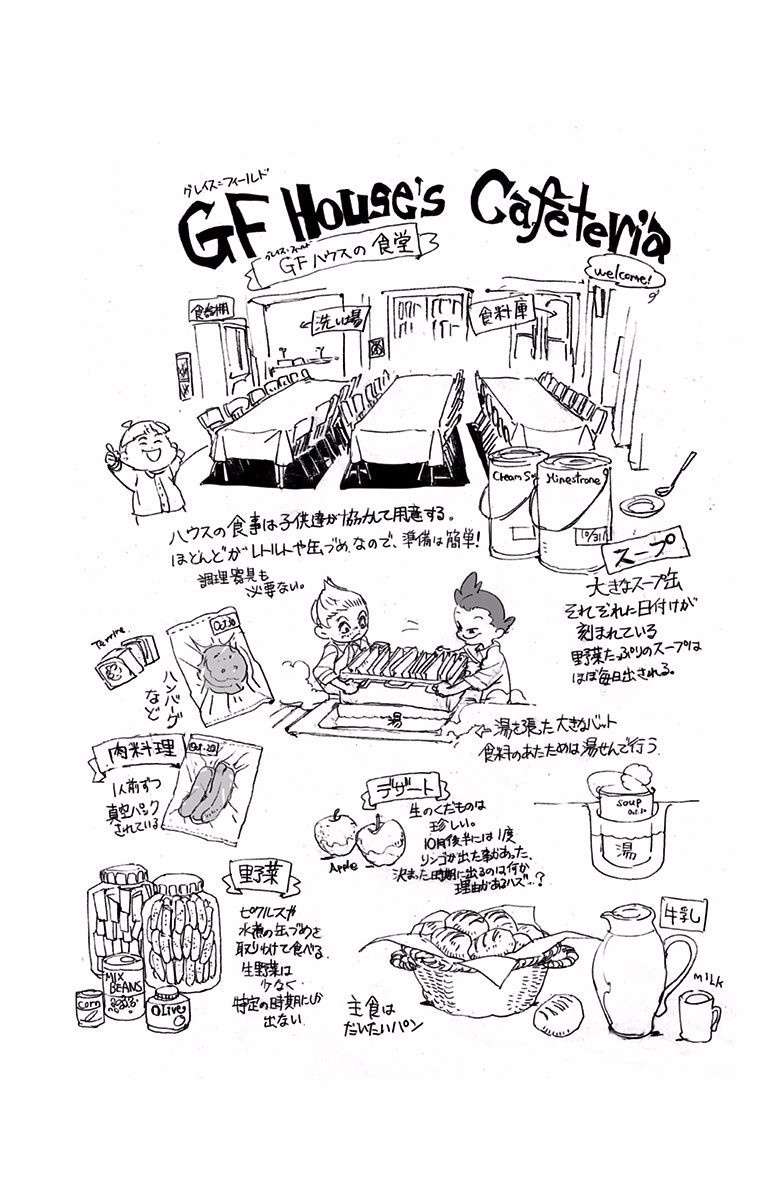 グレイス=フィールド
GF House's Cafeteria
グレイス=フィールド
GFハウスの食堂
welcome!
食器棚
←洗い場
食料庫
Cream S
Minestrone
10/31
スープ
ハウスの食事は子供達が協力して用意する。
ほとんどがレトルトや缶づめなので、準備は簡単!
調理器具も
必要ない。
大きなスープ缶
それぞれに日付けが
刻まれている
野菜たっぷりのスープは
ほぼ毎日出される。
Terrine
Oct.30
ハンバーグ
など
湯
湯を張った大きなバット
食料のあたためは湯せんで行う
肉料理
Oct.30
1人前ずつ
真空パック
されている
デザート
生のくだものは
珍しい。
10月後半には1度
リンゴが出た事があった、
決まった時期に出るのは何か
理由があるハズ…?
Apple
soup
Oct.30
湯
野菜
ピクルスや
水煮の缶づめを
取りわけて食べる。
生野菜は
少なく
特定の時期にしか
出ない
MIX
BEANS
Corn
Olive
主食は
だいたいパン
牛乳
MILK